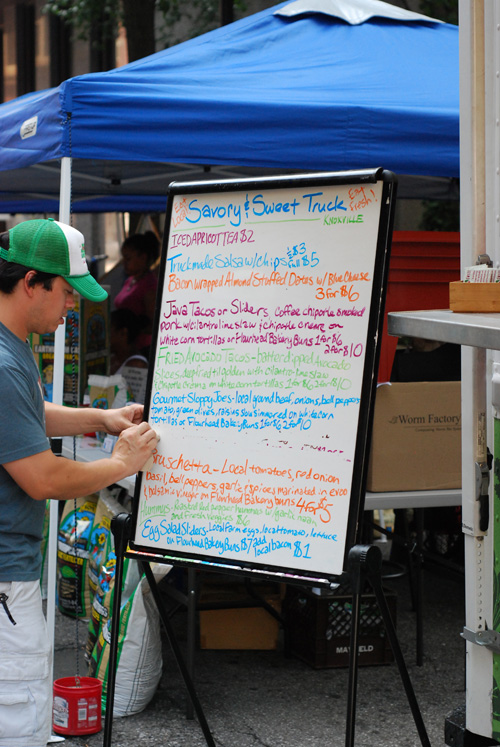 Savory & Sweet Truck
KNOXVILLE
ICED APRICOT TEA $2
Truckmade Salsa w/ chips ½ $3
full $5
Bacon wrapped Almond Stuffed Dates w/ Blue Cheese
3 for $6
Java Tacos or Sliders coffee chipotle smoked
pork w/ cilantro lime slaw & chipotle crema on
white corn tortillas or Flourhead Bakery Buns 1 for $6
2 for $10
Fried Avocado Tacos - batter dipped Avocado
slices deep fried & laden with cilantro lime slaw
chipotle crema on white corn tortillas 1 for $6 2 for $10
Gourmet Sloppy Joes - local ground beef, onions, bell peppers
tomato, green olives, raisins slow simmered on white corn
tortillas or Flourhead Bakery Buns 1 for $6 2 for $10
ruschetta - Local tomatoes, red onion
basil, bell peppers, garlic & spices marinated in evoo
& balsamic vinegar on Flourhead Bakery buns 4 for $5
Hummus
and fresh veggies $6
Egg Salad Sliders - Local Farm eggs, local tomato, lettuce
on Flourhead Bakery Buns $7 add
local bacon $1
Worm Factory
MAYFIELD